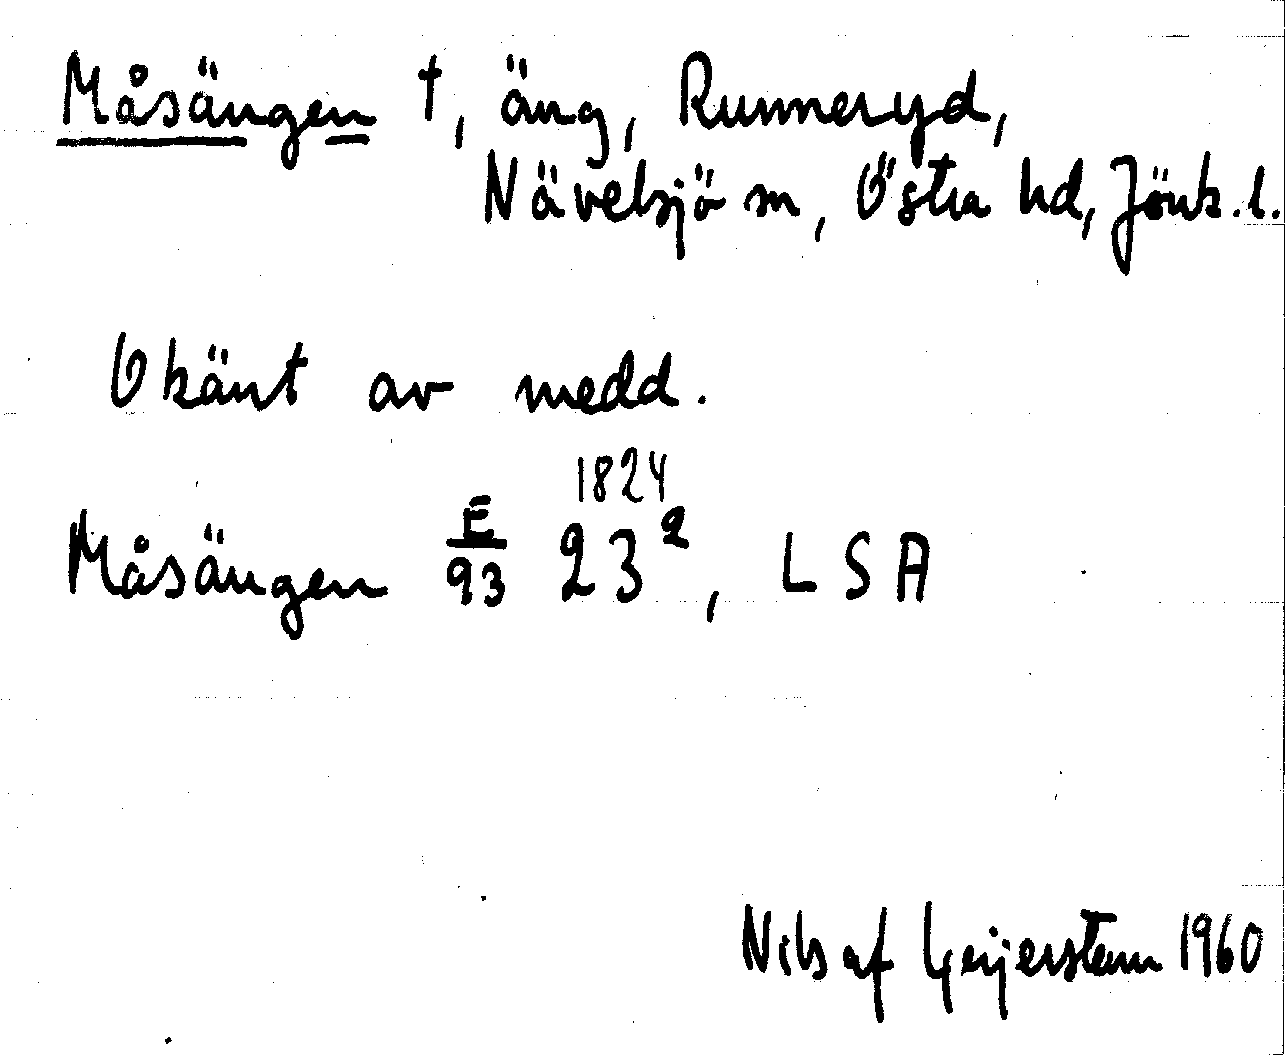 Måsängen †, äng, Runneryd,
Nävelsjö sn, Östra hd, Jönk. l.
Okänt av medd.
1824
Måsängen E/93 23², LSA
Nils af Geijerstam 1960